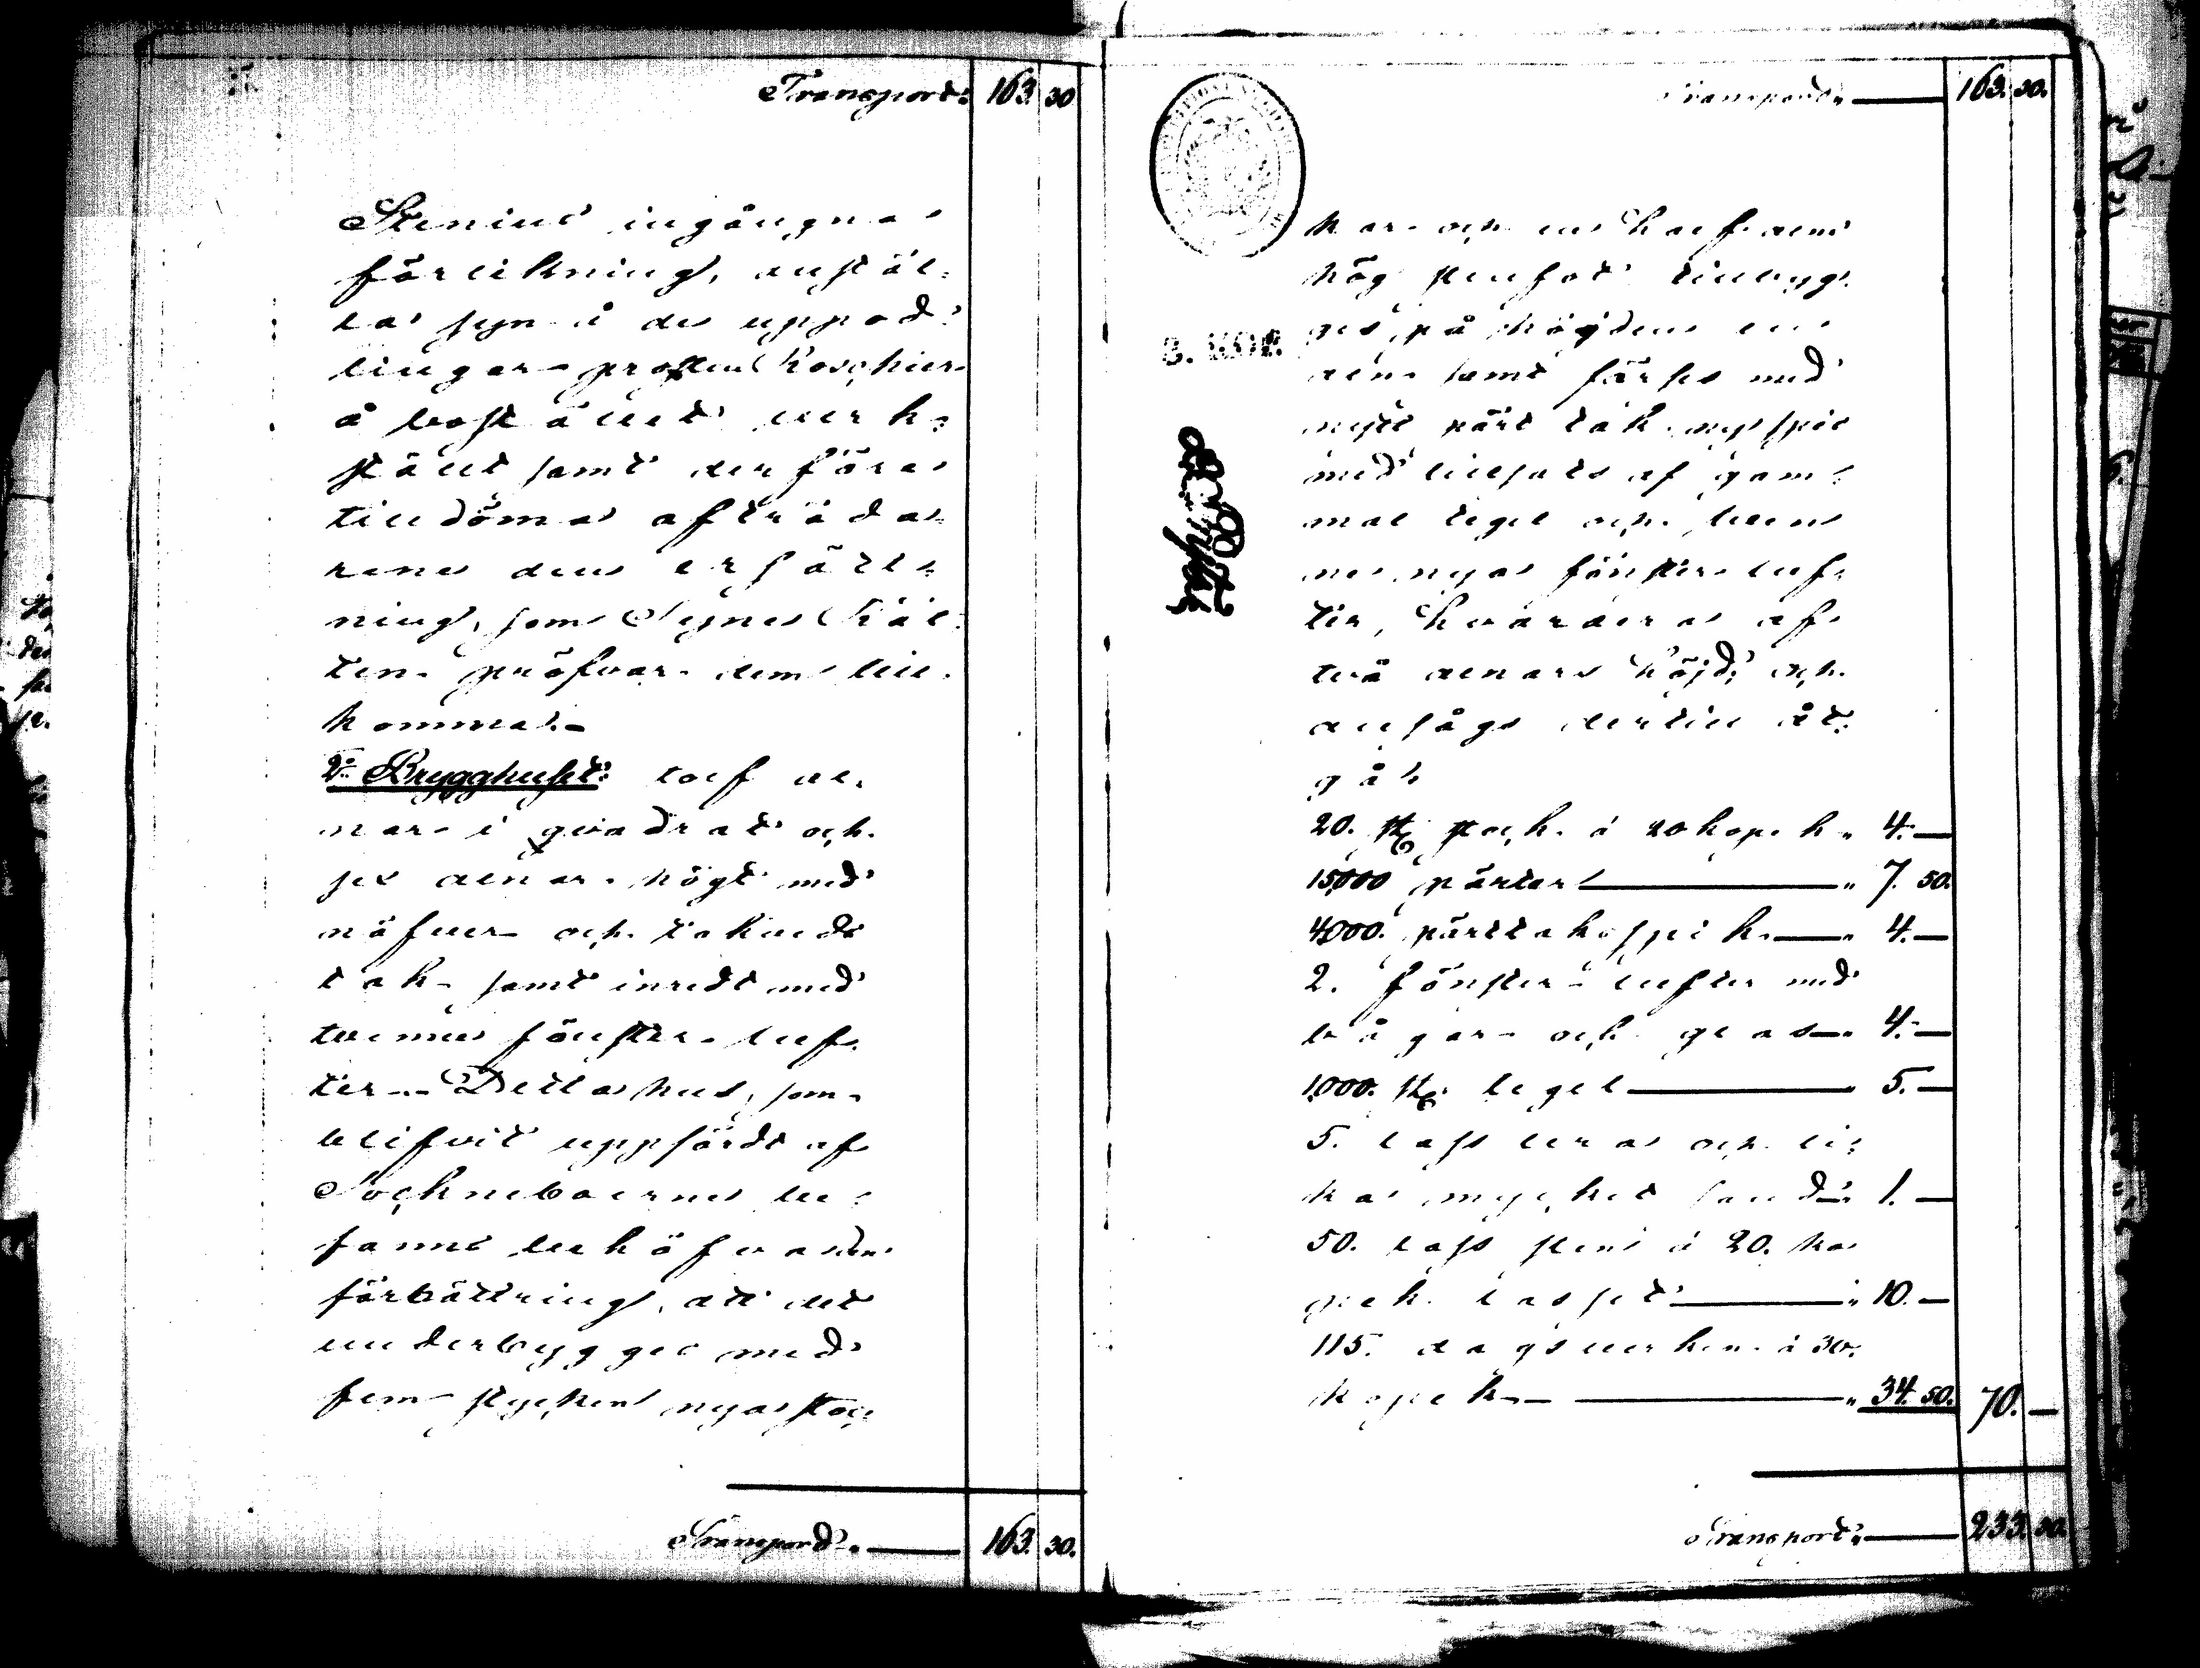 Transport: 163. 30
Stenius ingångna
förlikning, anstäl-
la syn å de uppod-
lingar prosten Roschier
å bostället verk-
stält samt derföre
tilldöma afträda-
rene den ersätt-
ning, som Syne Rät-
ten pröfvar dem till-
komma.
2:o Brygghuset: tolf al-
nar i qvadrat och
sex alnar högt med
näfver och takveds
tak samt inredt med
tvenne fönster luf-
ter. Detta hus, som
blifvit uppfördt af
Sockneboerne be-
fanns behöfva den
förbättring, att det
underbygges med
fem stycken nya stoc-
Transport. 163. 30.
Transport. 163. 30.
kar och en half aln
hög stenfot tillbyg-
ges, på höjden en
aln samt förses med
nytt pärt tak, ny spis
med tillsats af gam-
mal tegel och tven-
ne nya fönster luf-
ter, hvardera af
två alnars höjd, och
ansågs dertill åt-
gå:
20. st. stock. à 20 kopek " 4. —
15,000 pärtor " 7. 50.
4000. pärttakspik " 4. —
2. fönster lufter med
bågar och glas " 4. —
1,000. st. tegel " 5. —
5. lass lera och li-
ka mycket sand " 1. —
50. lass sten à 20. ko-
pek lasset " 10. —
115. dagsverken à 30.
kopek " 34. 50. 70. —
Transport. 233. 30.